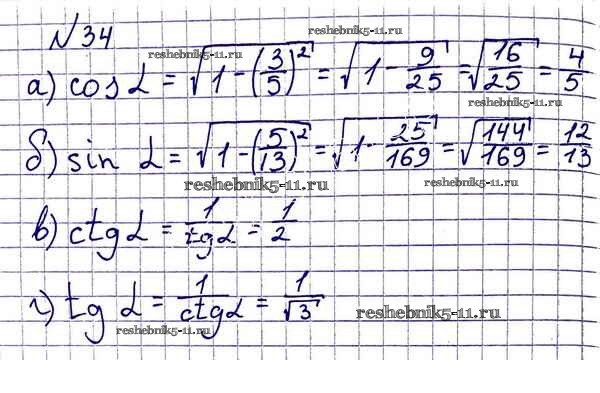 №34
reshebnik5-11.ru
reshebnik5-11.ru
а) cos α = √(1 - (3/5)²) = √(1 - 9/25) = √(16/25) = 4/5
reshebnik5-11.ru
б) sin α = √(1 - (5/13)²) = √(1 - 25/169) = √(144/169) = 12/13
reshebnik5-11.ru
reshebnik5-11.ru
в) ctg α = 1/tg α = 1/2
г) tg α = 1/ctg α = 1/√3
reshebnik5-11.ru
reshebnik5-11.ru